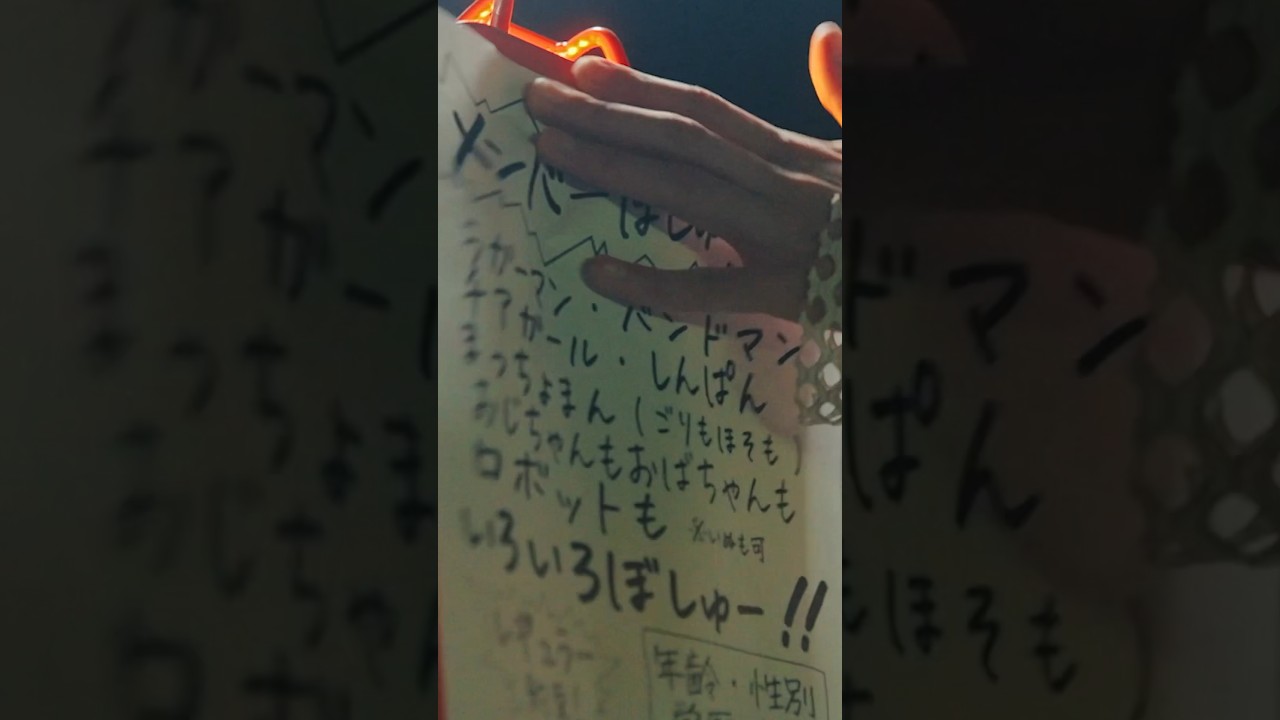 メンバーぼしゅ
らがーマン・バンドマン
チアガール・しんぱん
まっちょまん（ごりもほそも）
おじちゃんもおばちゃんも
ロボットも ※いぬも可
いろいろぼしゅー!!
レギュラー
年齢・性別